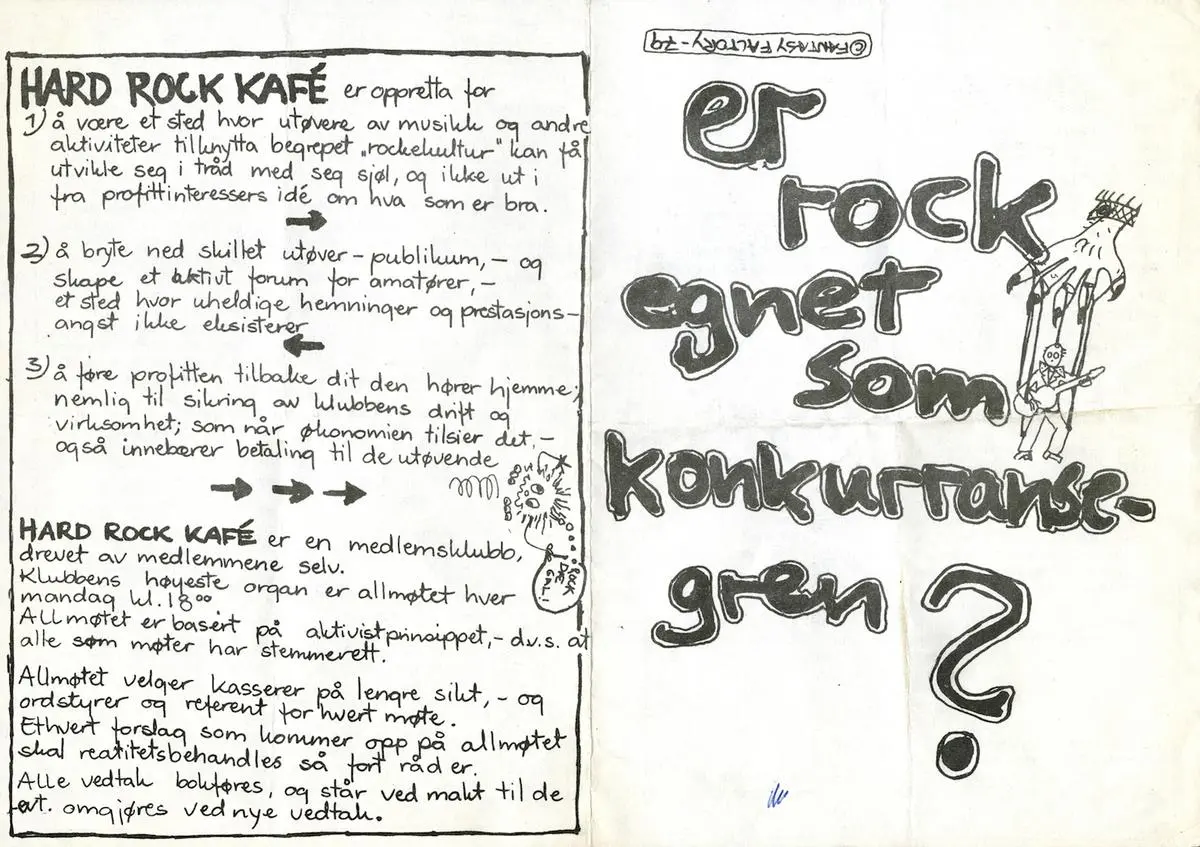 HARD ROCK KAFÉ er oppretta for
1) å være et sted hvor utøvere av musikk og andre
aktiviteter tilknytta begrepet „rockekultur" kan få
utvikle seg i tråd med seg sjøl, og ikke ut i
fra profittinteressers idé om hva som er bra.
2) å bryte ned skillet utøver – publikum, – og
skape et aktivt forum for amatører, –
et sted hvor uheldige hemninger og prestasjons-
angst ikke eksisterer
3) å føre profitten tilbake dit den hører hjemme;
nemlig til sikring av klubbens drift og
virksomhet; som når økonomien tilsier det, –
også innebærer betaling til de utøvende
HARD ROCK KAFÉ er en medlemsklubb,
drevet av medlemmene selv.
Klubbens høyeste organ er allmøtet hver
mandag kl. 18⁰⁰.
Allmøtet er basert på aktivistprinsippet, – d.v.s. at
alle som møter har stemmerett.
Allmøtet velger kasserer på lengre sikt, – og
ordstyrer og referent for hvert møte.
Ethvert forslag som kommer opp på allmøtet
skal realitetsbehandles så fort råd er.
Alle vedtak bokføres, og står ved makt til de
evt. omgjøres ved nye vedtak.
ROCK
GAL!
© FANTASY FACTORY -79
er
rock
egnet
som
konkurranse-
gren
?